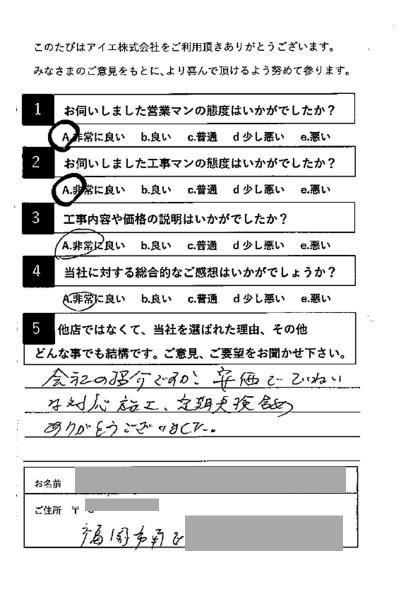 このたびはアイエ株式会社をご利用頂きありがとうございます。
みなさまのご意見をもとに、より喜んで頂けるよう努めて参ります。
1 お伺いしました営業マンの態度はいかがでしたか?
A.非常に良い b.良い c.普通 d 少し悪い e.悪い
2 お伺いしました工事マンの態度はいかがでしたか?
A.非常に良い b.良い c.普通 d 少し悪い e.悪い
3 工事内容や価格の説明はいかがでしたか?
A.非常に良い b.良い c.普通 d 少し悪い e.悪い
4 当社に対する総合的なご感想はいかがでしょうか?
A.非常に良い b.良い c.普通 d 少し悪い e.悪い
5 他店ではなくて、当社を選ばれた理由、その他
どんな事でも結構です。ご意見、ご要望をお聞かせ下さい。
会社の紹介ですが、安価でていねい
な対応施工、定期点検含め
ありがとうございました。
お名前
ご住所 〒
福岡市南区